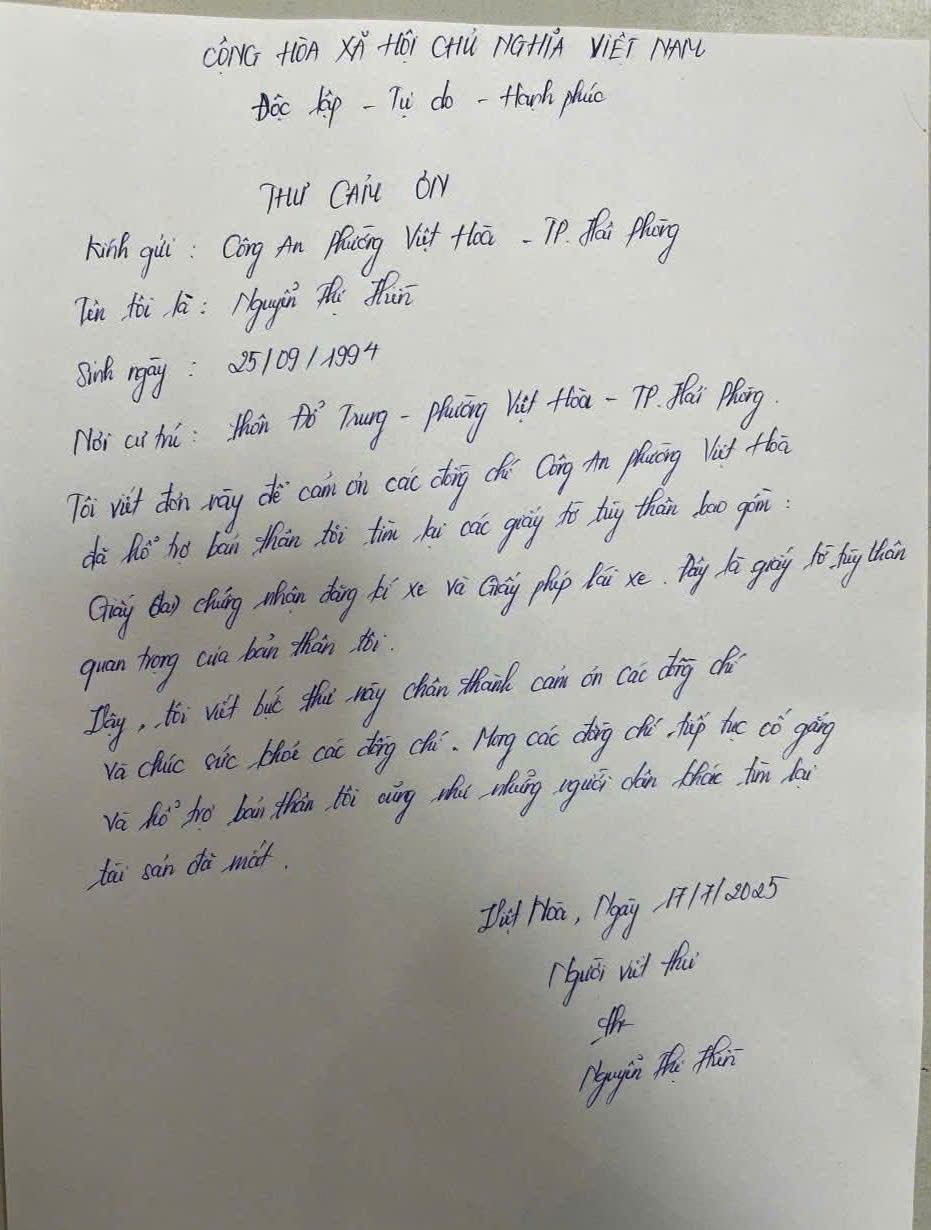 CỘNG HÒA XÃ HỘI CHỦ NGHĨA VIỆT NAM
Độc lập - Tự do - Hạnh phúc
THƯ CẢM ƠN
Kính gửi : Công An Phường Việt Hoà - TP. Hải Phòng
Tên tôi là : Nguyễn Thị Thìn
Sinh ngày : 25/09/1994
Nơi cư trú : thôn Đỗ Trung - phường Việt Hòa - TP. Hải Phòng.
Tôi viết đơn này để cảm ơn các đồng chí Công An phường Việt Hoà
đã hỗ trợ bản thân tôi tìm lại các giấy tờ tùy thân bao gồm :
Giấy chứng nhận đăng kí xe và Giấy phép lái xe. Đây là giấy tờ tùy thân
quan trọng của bản thân tôi.
Vậy, tôi viết bức thư này chân thành cảm ơn các đồng chí
và chúc sức khoẻ các đồng chí. Mong các đồng chí tiếp tục cố gắng
và hỗ trợ bản thân tôi cũng như những người dân khác tìm lại
tài sản đã mất.
Việt Hoà, Ngày 17/7/2025
Người viết thư
Nguyễn Thị Thìn